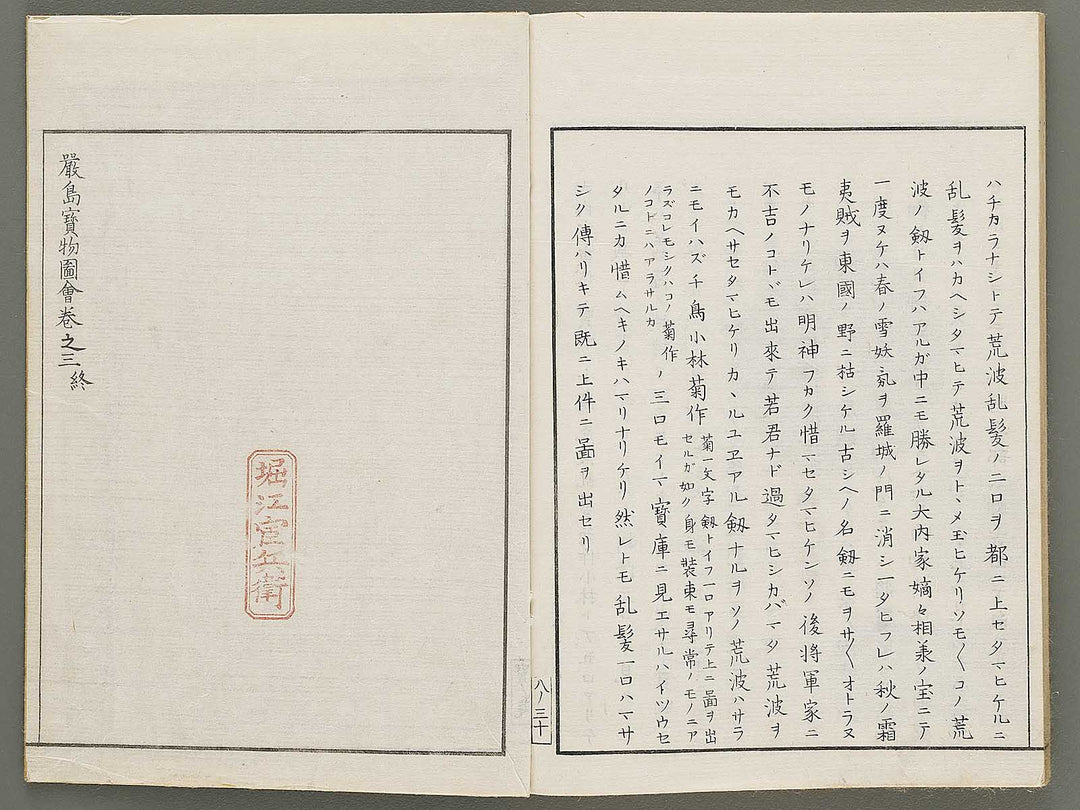 ハチカラナシトテ荒波乱髪ノ二口ヲ都ニ上セタマヒケルニ
乱髪ヲハカヘシタマヒテ荒波ヲトヽメ玉ヒケリソモ〱コノ荒
波ノ劔トイフハアルガ中ニモ勝レタル大内家嫡々相義ノ宝ニテ
一度ヌケハ春ノ雪妖氛ヲ羅城ノ門ニ消シ一タヒフレハ秋ノ霜
夷賊ヲ東國ノ野ニ枯シケル古シヘノ名劔ニモヲサ〱オトラヌ
モノナリケレハ明神フカク惜マセタマヒケンソノ後将軍家ニ
不吉ノコトドモ出來テ若君ナド過タマヒシカバマタ荒波ヲ
モカヘサセタマヒケリカヽルユヱアル劔ナルヲソノ荒波ハサラ
ニモイハズ千鳥小林菊作
菊一文字劔トイフ一口アリテ上ニ圖ヲ出
セルガ如ク身モ装束モ尋常ノモノニア
ラズコレモシクハコノ菊作
ノコトニハアラサルカ
ノ三口モイマ寳庫ニ見エサルハイツウセ
タルニカ惜ムヘキノキハマリナリケリ然レトモ乱髪一口ハマサ
シク傳ハリキテ既ニ上件ニ圖ヲ出セリ
八ノ三十
嚴島寳物圖會卷之三終
堀江官兵衛